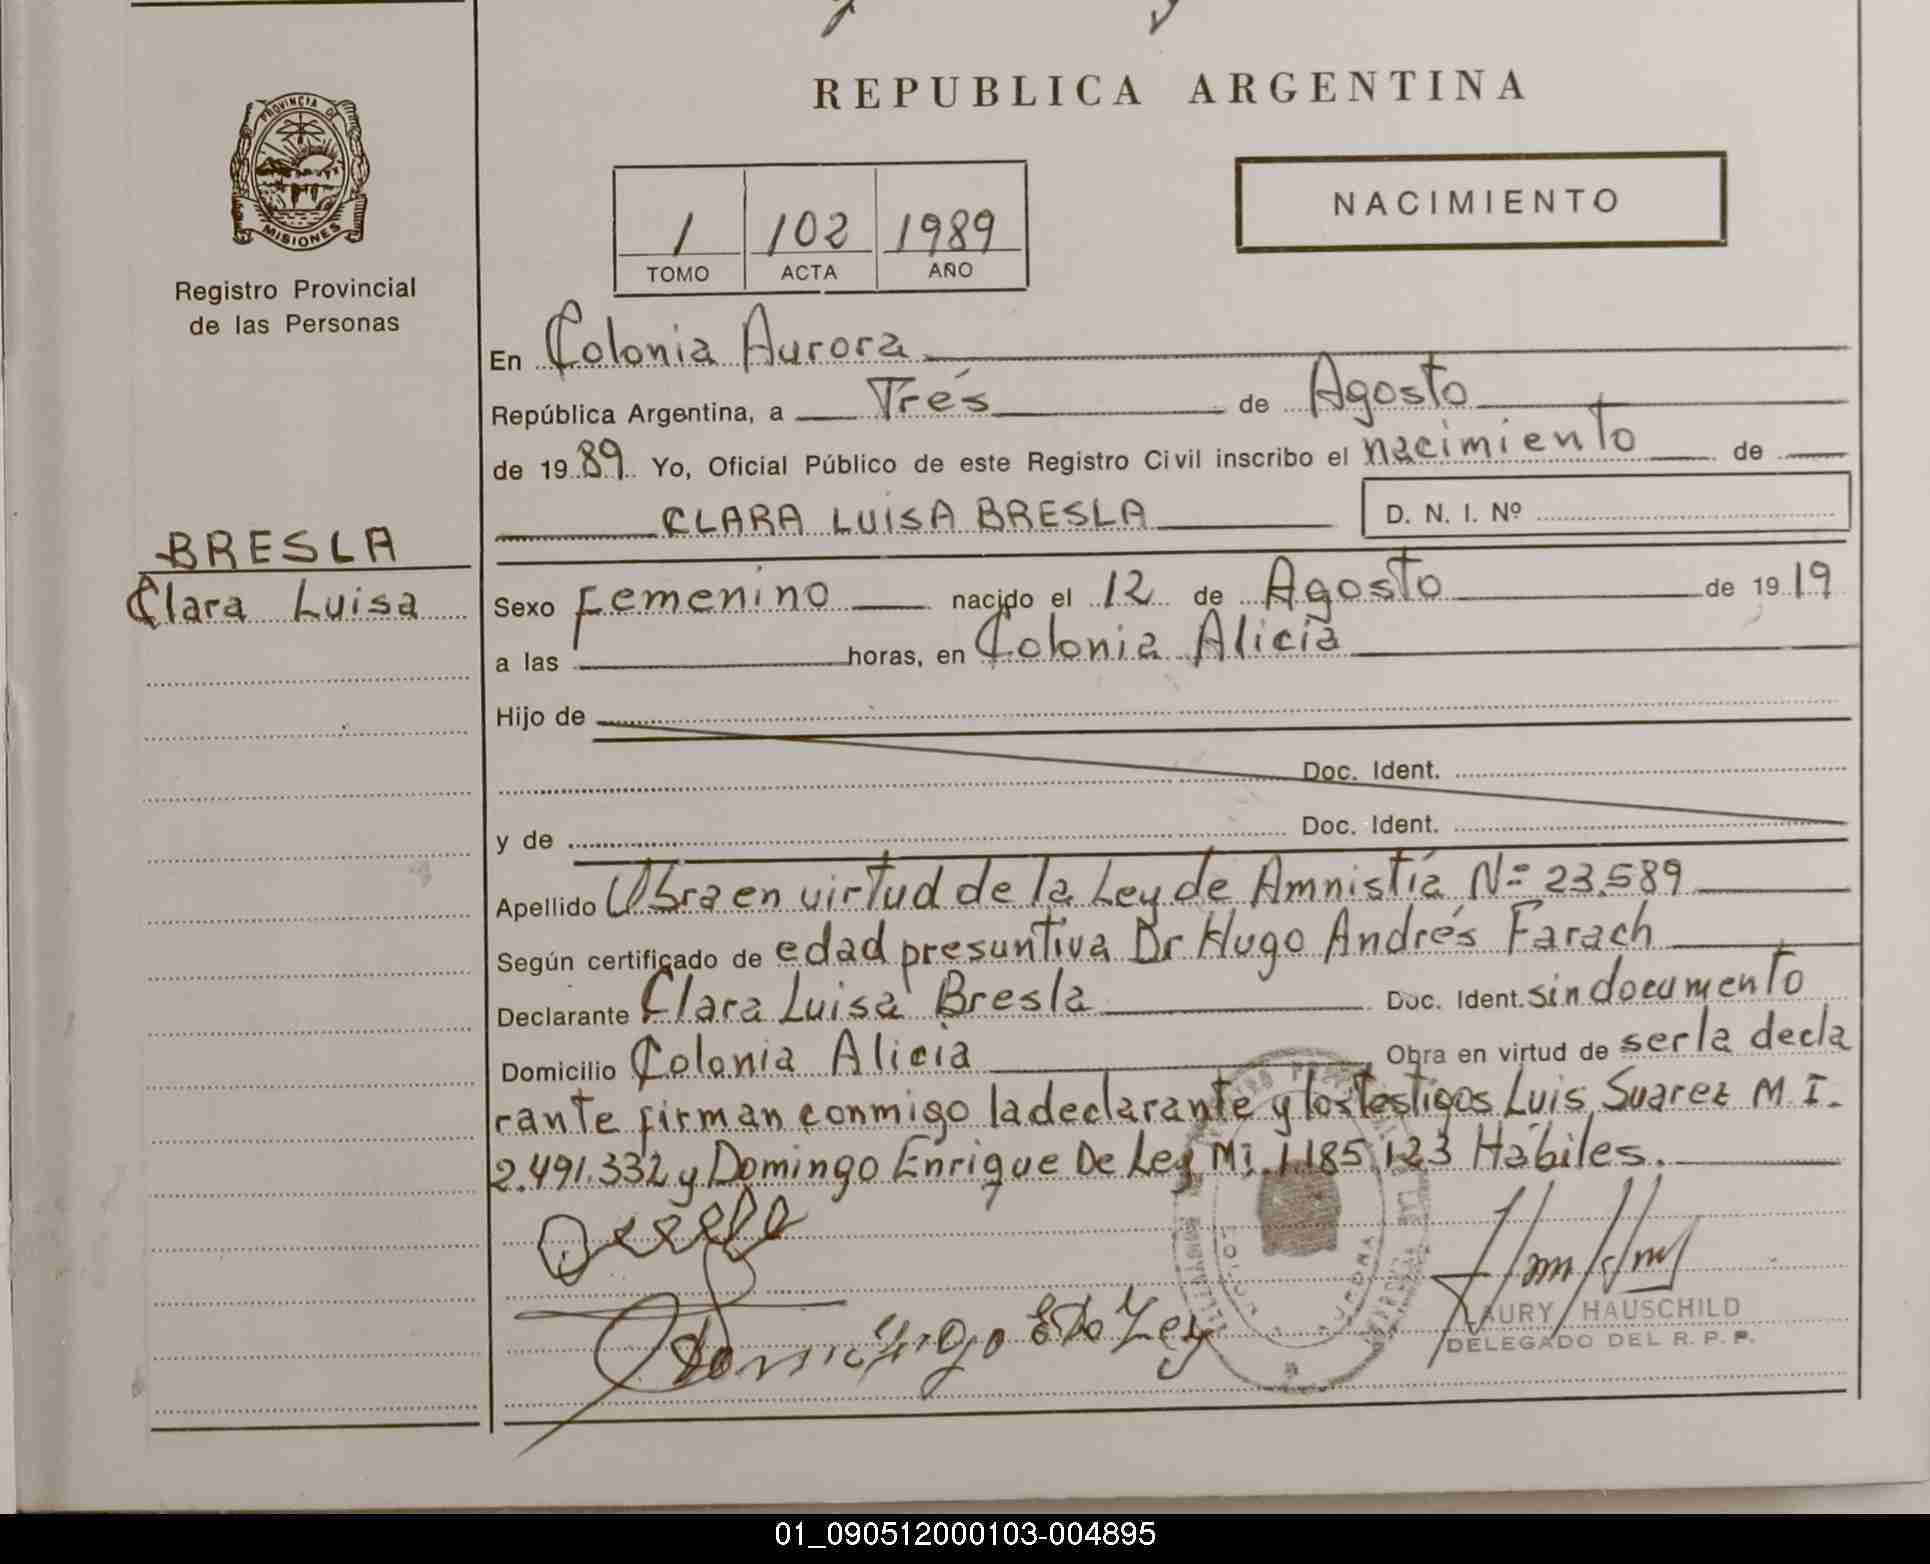 REPUBLICA ARGENTINA
PROVINCIA DE
MISIONES
Registro Provincial
de las Personas
NACIMIENTO
1 102 1989
TOMO ACTA AÑO
En Colonia Aurora
República Argentina, a Trés de Agosto
de 1989 Yo, Oficial Público de este Registro Civil inscribo el nacimiento de
CLARA LUISA BRESLA D. N. I. Nº
BRESLA
Clara Luisa
Sexo Femenino nacido el 12 de Agosto de 1919
a las horas, en Colonia Alicia
Hijo de
Doc. Ident.
y de Doc. Ident.
Apellido Obra en virtud de la Ley de Amnistía N= 23.589
Según certificado de edad presuntiva Dr Hugo Andrés Farach
Declarante Clara Luisa Bresla Doc. Ident. sin documento
Domicilio Colonia Alicia Obra en virtud de ser la decla
rante firman conmigo la declarante y los testigos Luis Suarez M I.
2.491.332 y Domingo Enrique De Ley Mi 1.185.123 Hábiles.
Domingo E De Ley
LAURY HAUSCHILD
DELEGADO DEL R. P. P.
01_090512000103-004895